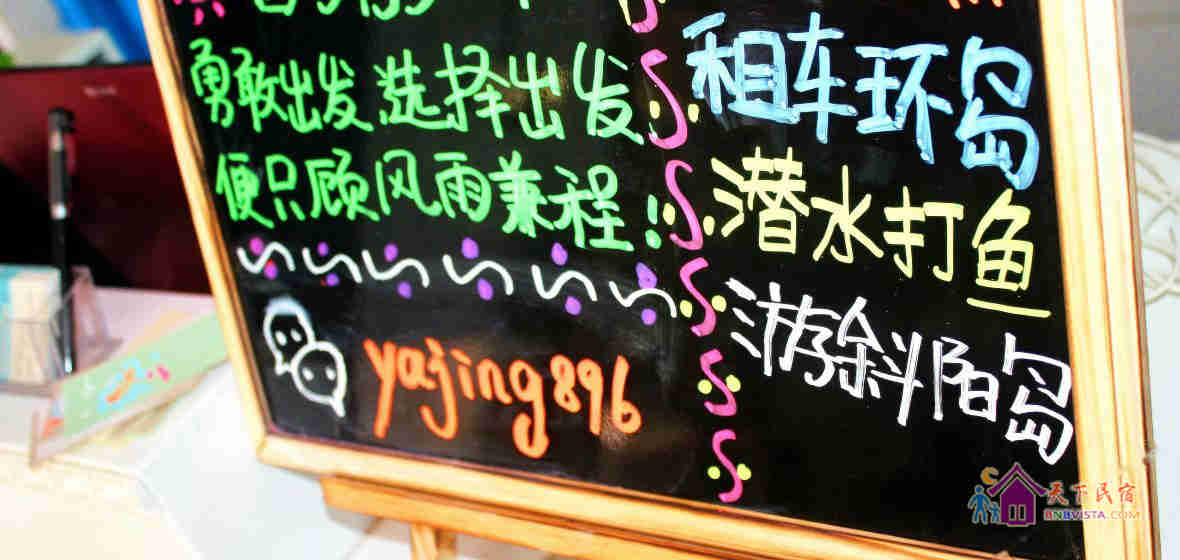 勇敢出发,选择出发,
便只顾风雨兼程!
yajing896
租车环岛
潜水打鱼
游斜阳岛
天下民宿
BNBVISTA.COM